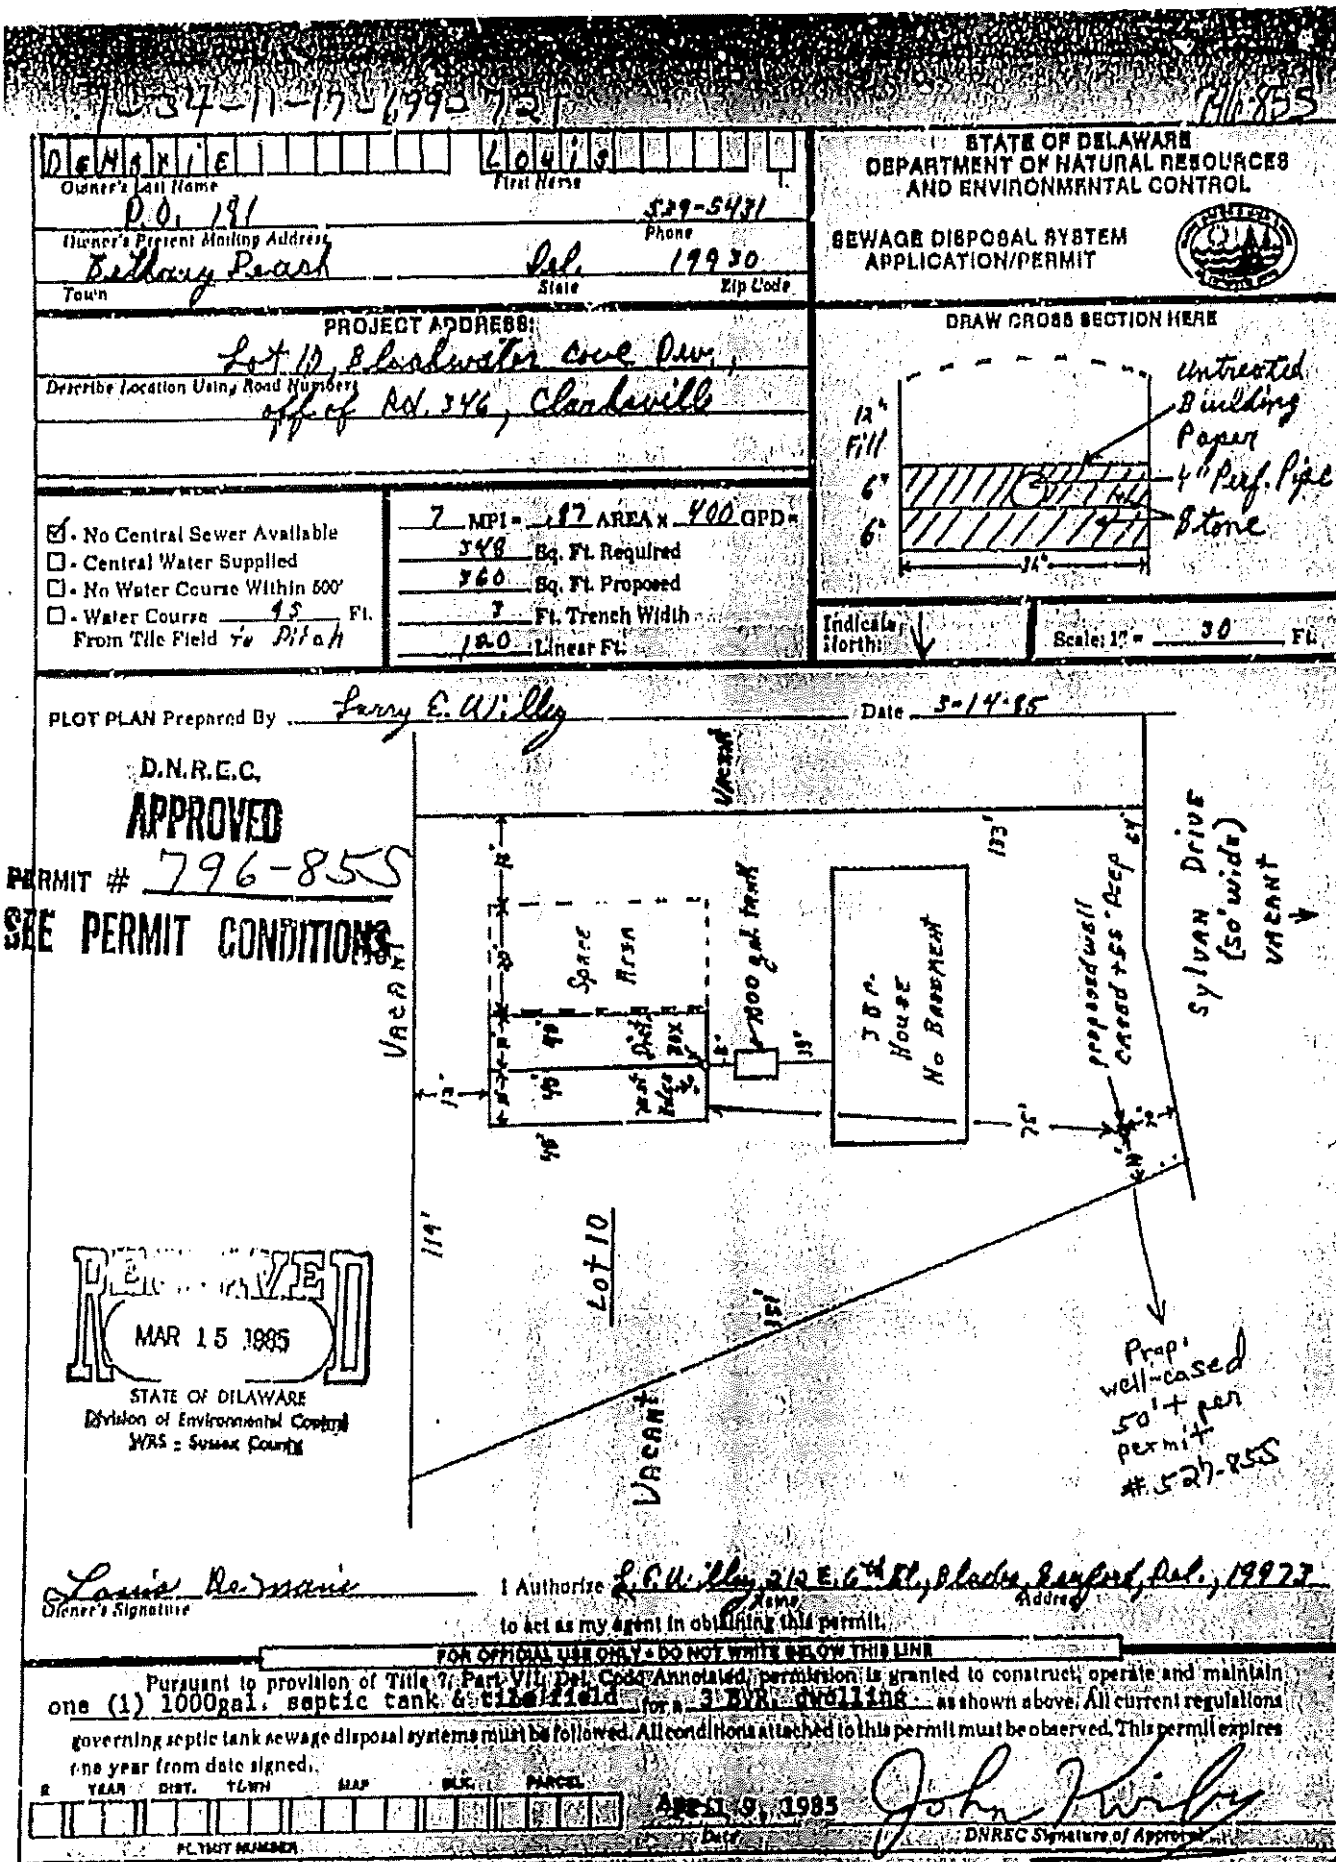 1-34-11-17-699-721
796-85S
DEMARIE LOUIS
Owner's Last Name First Name I.
P.O. 191 539-5431
Owner's Present Mailing Address Phone
Bethany Beach Del. 19930
Town State Zip Code
STATE OF DELAWARE
DEPARTMENT OF NATURAL RESOURCES
AND ENVIRONMENTAL CONTROL
SEWAGE DISPOSAL SYSTEM
APPLICATION/PERMIT
PROJECT ADDRESS:
Lot 10, Blackwater Cove Dev.,
Describe Location Using Road Numbers
off of Rd. 346, Clarksville
DRAW CROSS SECTION HERE
Untreated
Building
Paper
4" Perf. Pipe
Stone
12"
Fill
6"
6"
36"
☑ - No Central Sewer Available
☐ - Central Water Supplied
☐ - No Water Course Within 500'
☐ - Water Course 45 Ft.
From Tile Field To Ditch
7 MPI = .87 AREA x 400 GPD =
348 Sq. Ft. Required
360 Sq. Ft. Proposed
3 Ft. Trench Width
120 Linear Ft.
Indicate
North:
Scale: 1" = 30 Ft.
PLOT PLAN Prepared By Larry E. Willey Date 3-14-85
D.N.R.E.C.
APPROVED
PERMIT # 796-85S
SEE PERMIT CONDITIONS
VACANT
VACANT
133'
64'
Sylvan Drive
(50' wide)
VACANT
Spare
Area
20'
40'
40'
40'
Dist.
Box
1000 gal. tank
3 BR.
House
No Basement
proposed well
cased +55' Deep
75'
119'
Lot 10
151'
VACANT
Prop.
well-cased
50'+ per
permit
#527-85S
RECEIVED
MAR 15 1985
STATE OF DELAWARE
Division of Environmental Control
WRS - Sussex County
Louis Demarie
Owner's Signature
I Authorize L.E. Willey, 212 E. 6th St., Blades, Seaford, Del., 19973
Name Address
to act as my agent in obtaining this permit.
FOR OFFICIAL USE ONLY - DO NOT WRITE BELOW THIS LINE
Pursuant to provision of Title 7, Part VII, Del. Code Annotated, permission is granted to construct, operate and maintain
one (1) 1000gal. septic tank & tile field for a 3 BYR. dwelling as shown above. All current regulations
governing septic tank sewage disposal systems must be followed. All conditions attached to this permit must be observed. This permit expires
one year from date signed.
YEAR DIST. TOWN MAP BLK. PARCEL
PERMIT NUMBER
April 9, 1985
Date
John Kirby
DNREC Signature of Approval